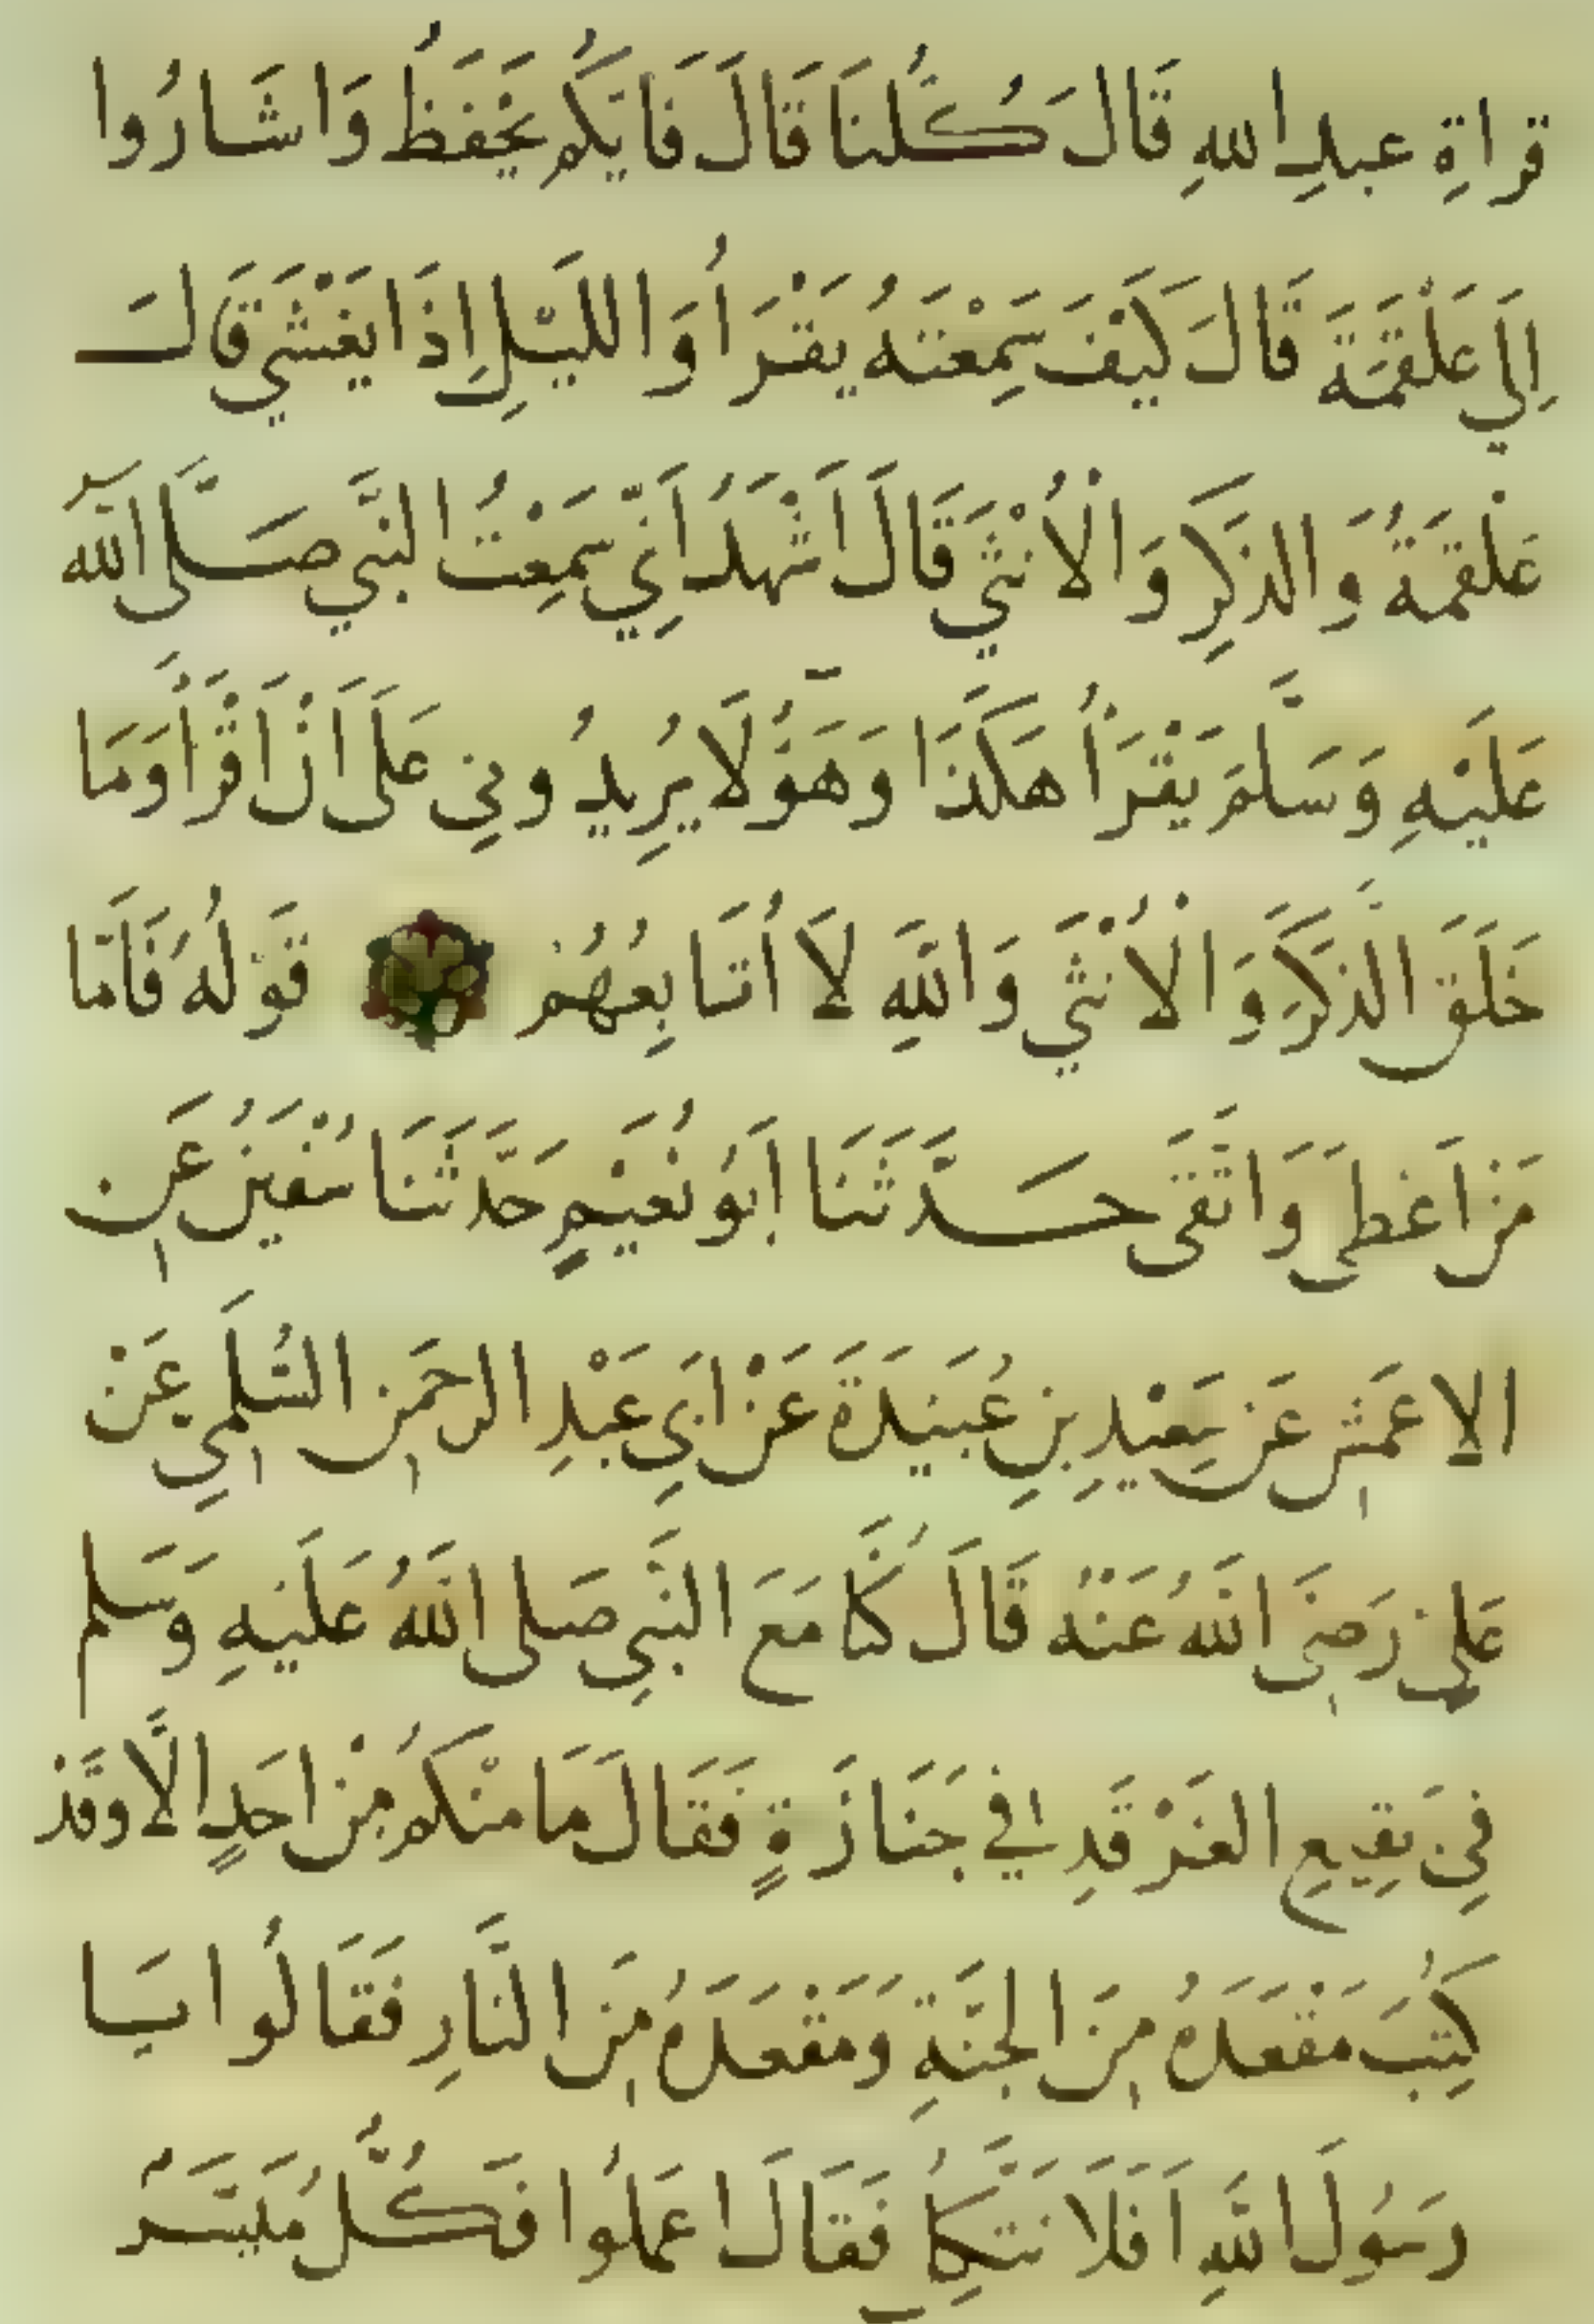 قراةِ عبدِ اللهِ قَالَ كُلُّنَا قَالَ فَايُّكُم يَحْفَظُ وَاشَارُوا
اِلَي عَلْقَمَةَ قَالَ كَيْفَ سَمِعْتَهُ يَقْرَأُ وَاللَيْلِ اِذَا يَغْشَي قَالَ
عَلْقَمَةُ وَالذَكَرِ وَالْاُنْثَي قَالَ اَشْهَدُ اَنِّي سَمِعْتُ النَّبِي صَلَّى اللهُ
عَلَيْهِ وَسَلَّمَ يَقْرَأُ هَكَذَا وَهَؤُلَآ يُرِيدُونِي عَلَى اَنْ اَقْرَأَ وَمَا
خَلَقَ الذَّكَرَ وَالْاُنْثَي وَاللَّهِ لَا أُتَابِعُهُمْ قَوْلُهُ فَاَمَّا
مَنْ اَعْطَى وَاتَّقَى حَدَّثَنَا اَبُو نُعَيْمٍ حَدَّثَنَا سُفْيَنُ عَنِ
الاعْمَشِ عَنْ سَعْيدِ بنِ عُبَيْدَةَ عَنْ اَبِي عَبْدِ الرحَمنِ السُّلَمِي عَنْ
عَلِيٍ رَضِيَ اللهُ عَنْهُ قَالَ كُنَّا مَعَ النَّبِي صَلى اللهُ عَلَيْهِ وَسَلم
فِي بَقِيعِ الغَرْقَدِ في جَنَازَةٍ فَقَالَ مَا مِنْكُم مِنْ اَحَدٍ الَّا وقَدْ
كُتِبَ مَقْعَدَهُ مِنَ الجَنَّةِ وَمَقْعَدَهُ مِنَ النَّارِ فَقَالُوا يَا
رَسُولَ اللَّهِ اَفَلَا نَتَّكِلُ فَقَالَ اعمَلُوا فَكُلٌّ مُيَسَّرٌ